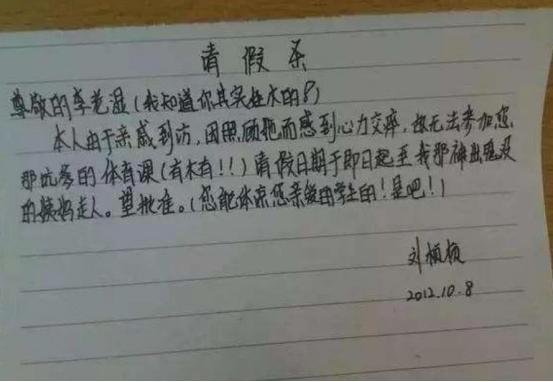 请假条
尊敬的李老湿(我知道你其实姓水的
本人由于亲戚到访,因照顾她而感到心力交瘁,故无法参加您
那坑爹的体育课(有木有!!)请假日期于即日起至我那神出鬼没
的姨妈走人。望批准。(您能体谅您亲爱的学生的!是吧!)
刘
2012.10.8